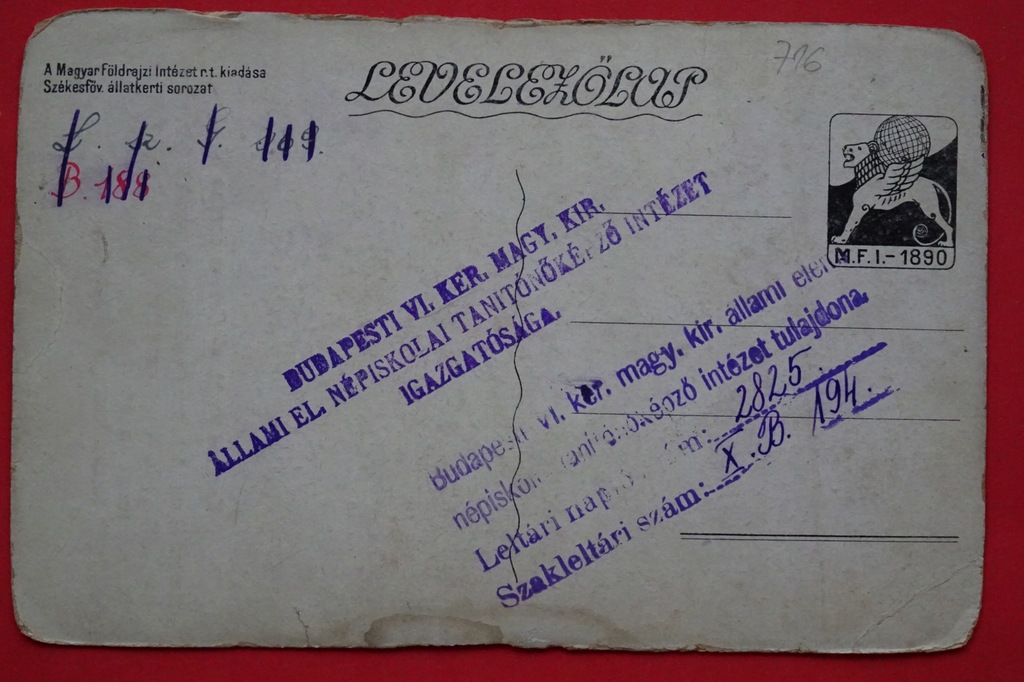 A Magyar Földrajzi Intézet r.t. kiadása
Székesfőv. állatkerti sorozat
LEVELEZŐLAP
716
L. 2. f.
B. 188
M.F.I.-1890
BUDAPESTI VI. KER. MAGY. KIR.
ÁLLAMI EL. NÉPISKOLAI TANITÓNŐKÉPZŐ INTÉZET
IGAZGATÓSÁGA.
Budapesti VI. ker. magy. kir. állami elemi
népiskolai tanítónőképző intézet tulajdona.
Leltári napló szám: 2825
Szakleltári szám: X. B. 194.